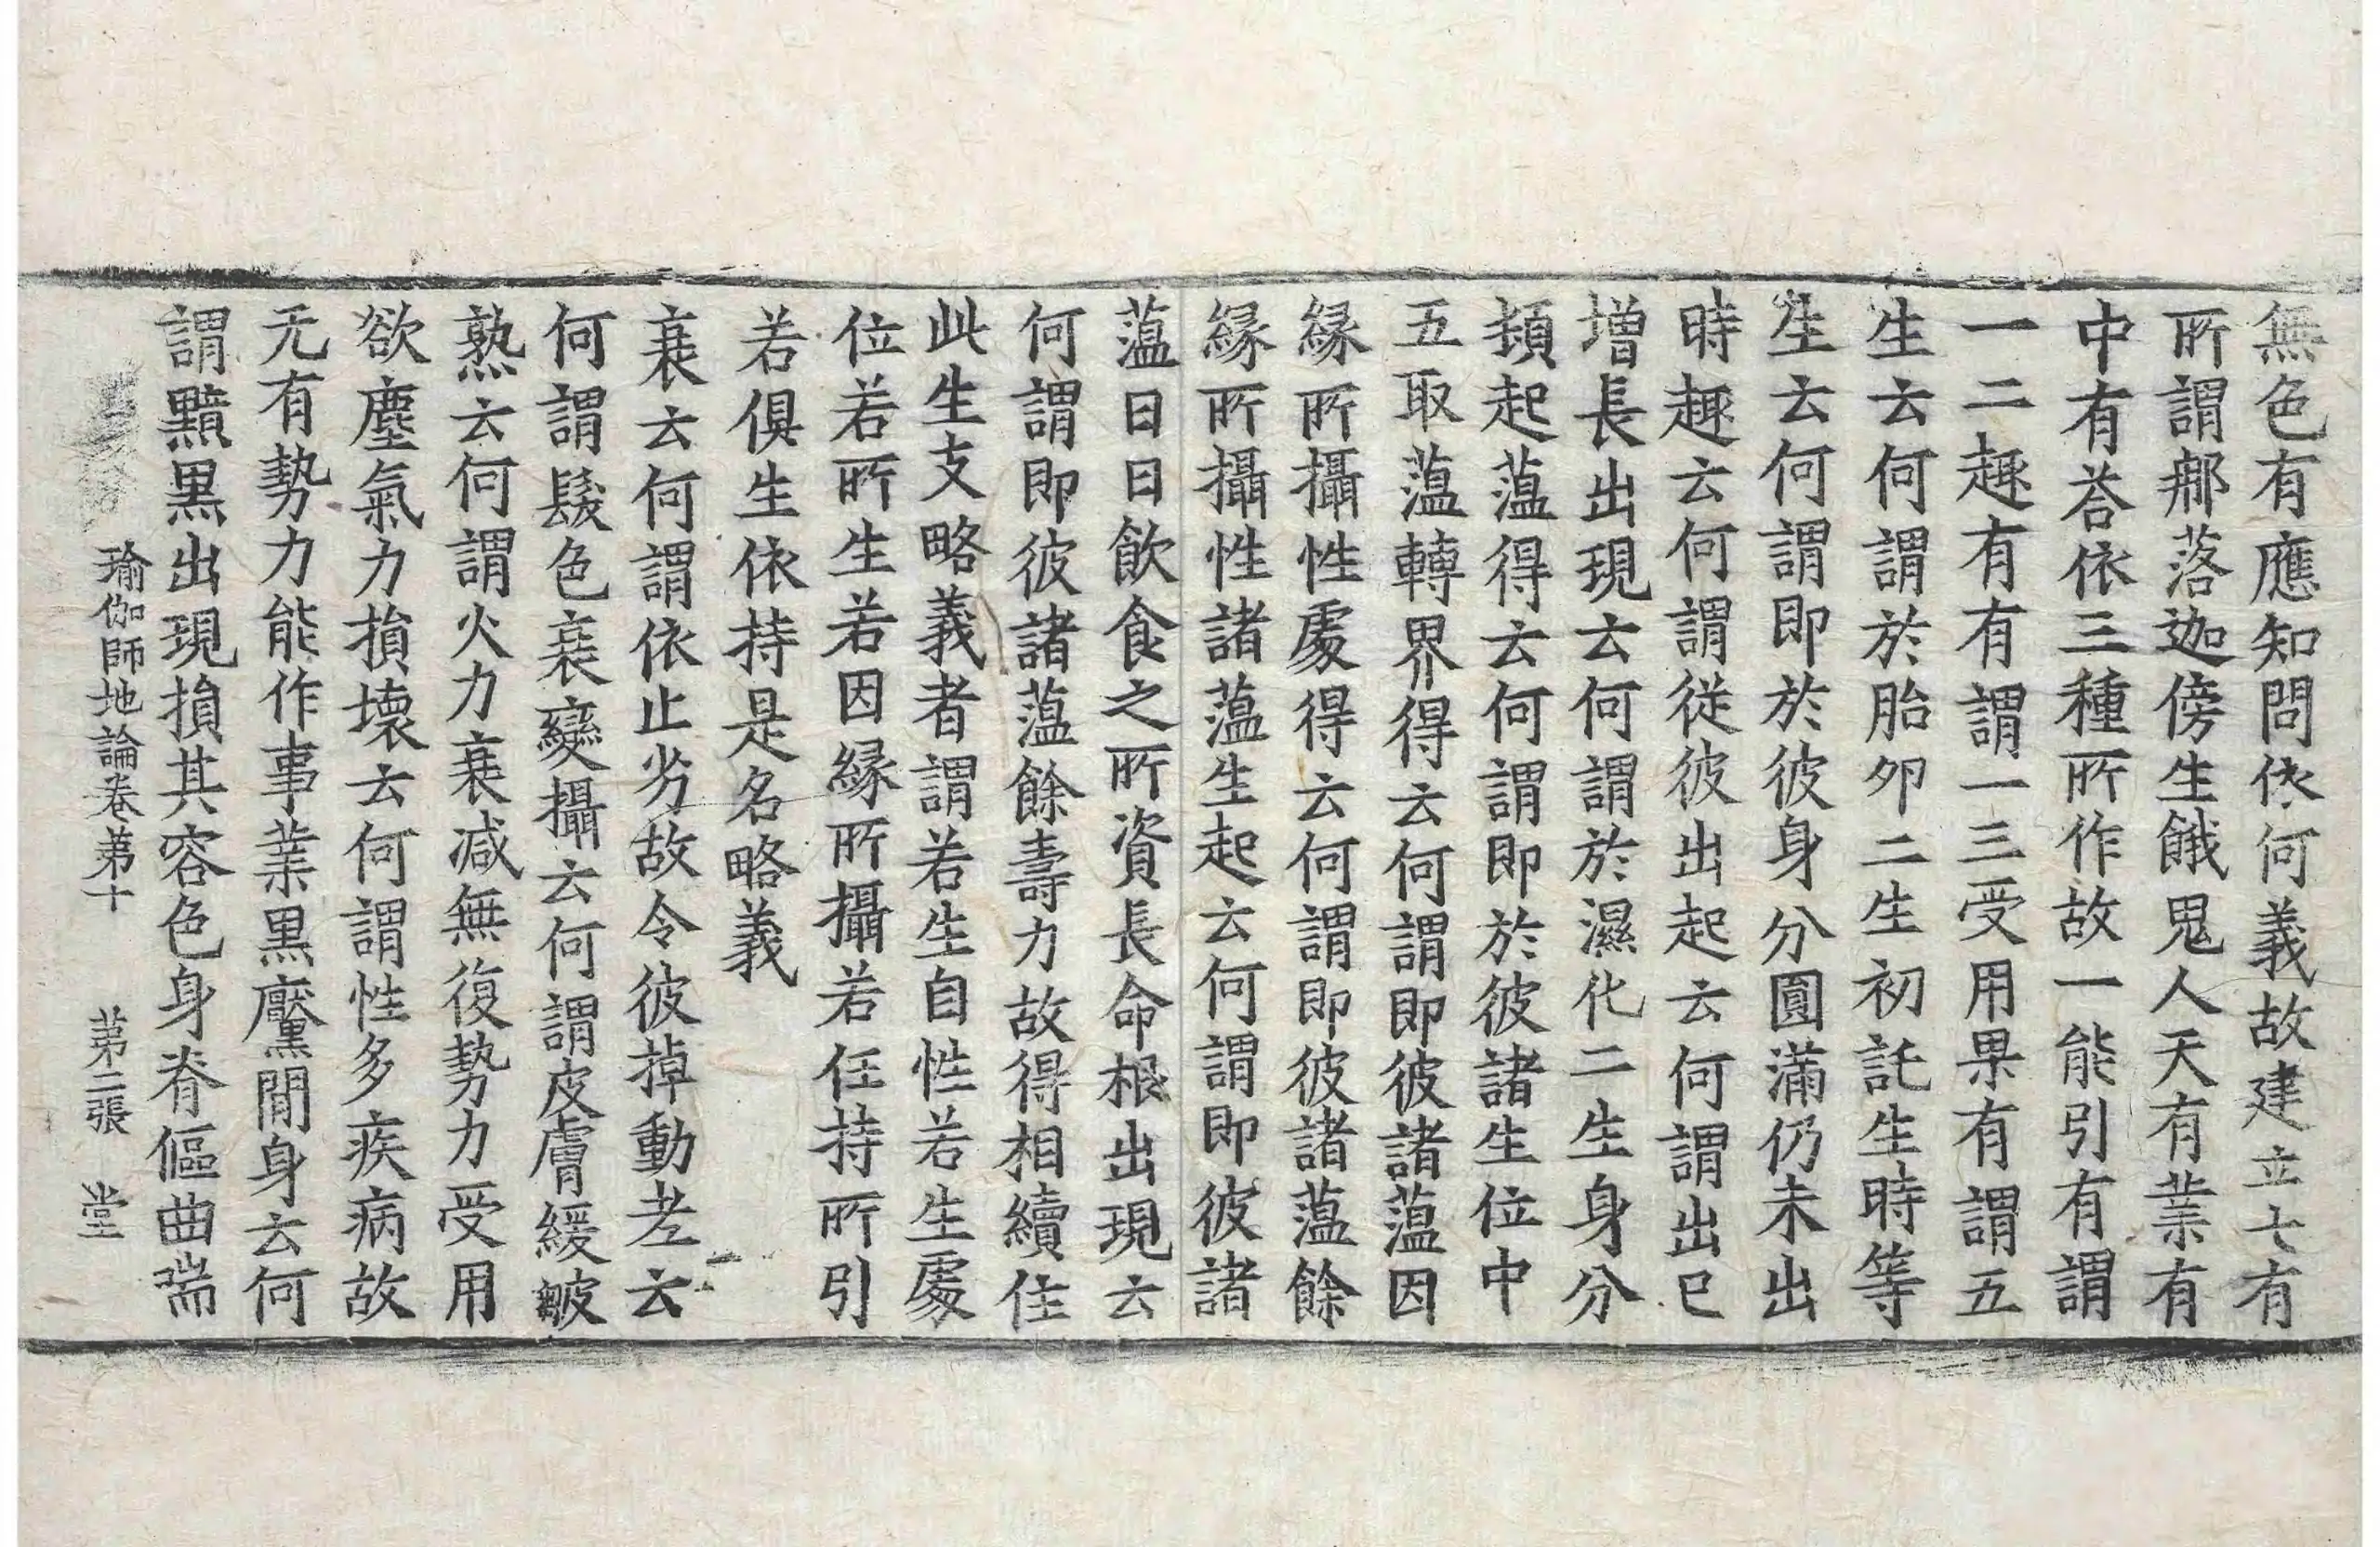 無色有應知問依何義故建立七有
所謂那落迦傍生餓鬼人天有業有
中有荅依三種所作故一能引有謂
一二趣有有謂一三受用果有謂五
生云何謂於胎卵二生初託生時等
生云何謂即於彼身分圓滿仍未出
時趣云何謂從彼出起云何謂出已
增長出現云何謂於濕化二生身分
頓起蕰得云何謂即於彼諸生位中
五取蕰轉界得云何謂即彼諸蕰因
緣所攝性處得云何謂即彼諸蕰餘
緣所攝性諸蕰生起云何謂即彼諸
蕰日日飲食之所資長命根出現云
何謂即彼諸蕰餘壽力故得相續住
此生支略義者謂若生自性若生處
位若所生若因緣所攝若任持所引
若俱生依持是名略義
衰云何謂依止劣故令彼掉動老云
何謂髮色衰變攝云何謂皮膚緩皺
熟云何謂火力衰減無復勢力受用
欲塵氣力損壞云何謂性多疾病故
无有勢力能作事業黑黶閒身云何
謂黯黑出現損其容色身脊傴曲喘
瑜伽師地論卷苐十 苐二張 堂